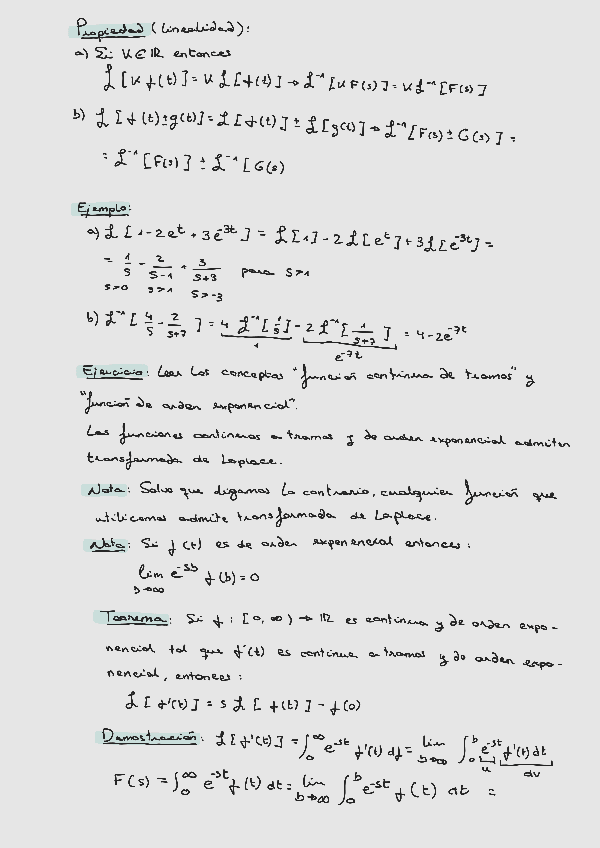 Propiedad (Linealidad):
a) Si K ∈ ℝ entonces
ℒ[K f(t)] = K ℒ[f(t)] → ℒ⁻¹[K F(s)] = K ℒ⁻¹[F(s)]
b) ℒ[f(t) ± g(t)] = ℒ[f(t)] ± ℒ[g(t)] → ℒ⁻¹[F(s) ± G(s)] =
= ℒ⁻¹[F(s)] ± ℒ⁻¹[G(s)
Ejemplo:
a) ℒ[1 - 2e^t + 3e^{-3t}] = ℒ[1] - 2ℒ[e^t] + 3ℒ[e^{-3t}] =
= 1/s - 2/(s-1) + 3/(s+3) para s>1
s>0 s>1 s>-3
b) ℒ⁻¹[4/s - 2/(s+7)] = 4 ℒ⁻¹[1/s] - 2 ℒ⁻¹[1/(s+7)] = 4 - 2e^{-7t}
1 e^{-7t}
Ejercicio: Leer los conceptos "función continua de tramos" y
"función de orden exponencial".
Las funciones continuas a tramos y de orden exponencial admiten
transformada de Laplace.
Nota: Salvo que digamos lo contrario, cualquier función que
utilicemos admite transformada de Laplace.
Nota: Si f(t) es de orden exponencial entonces:
lim e^{-sb} f(b) = 0
b→∞
Teorema: Si f: [0, ∞) → ℝ es continua y de orden expo-
nencial tal que f'(t) es continua a tramos y de orden expo-
nencial, entonces:
ℒ[f'(t)] = s ℒ[f(t)] - f(0)
Demostración: ℒ[f'(t)] = ∫₀^∞ e^{-st} f'(t) dt = lim b→∞ ∫₀^b e^{-st} f'(t) dt
u dv
F(s) = ∫₀^∞ e^{-st} f(t) dt = lim b→∞ ∫₀^b e^{-st} f(t) dt =